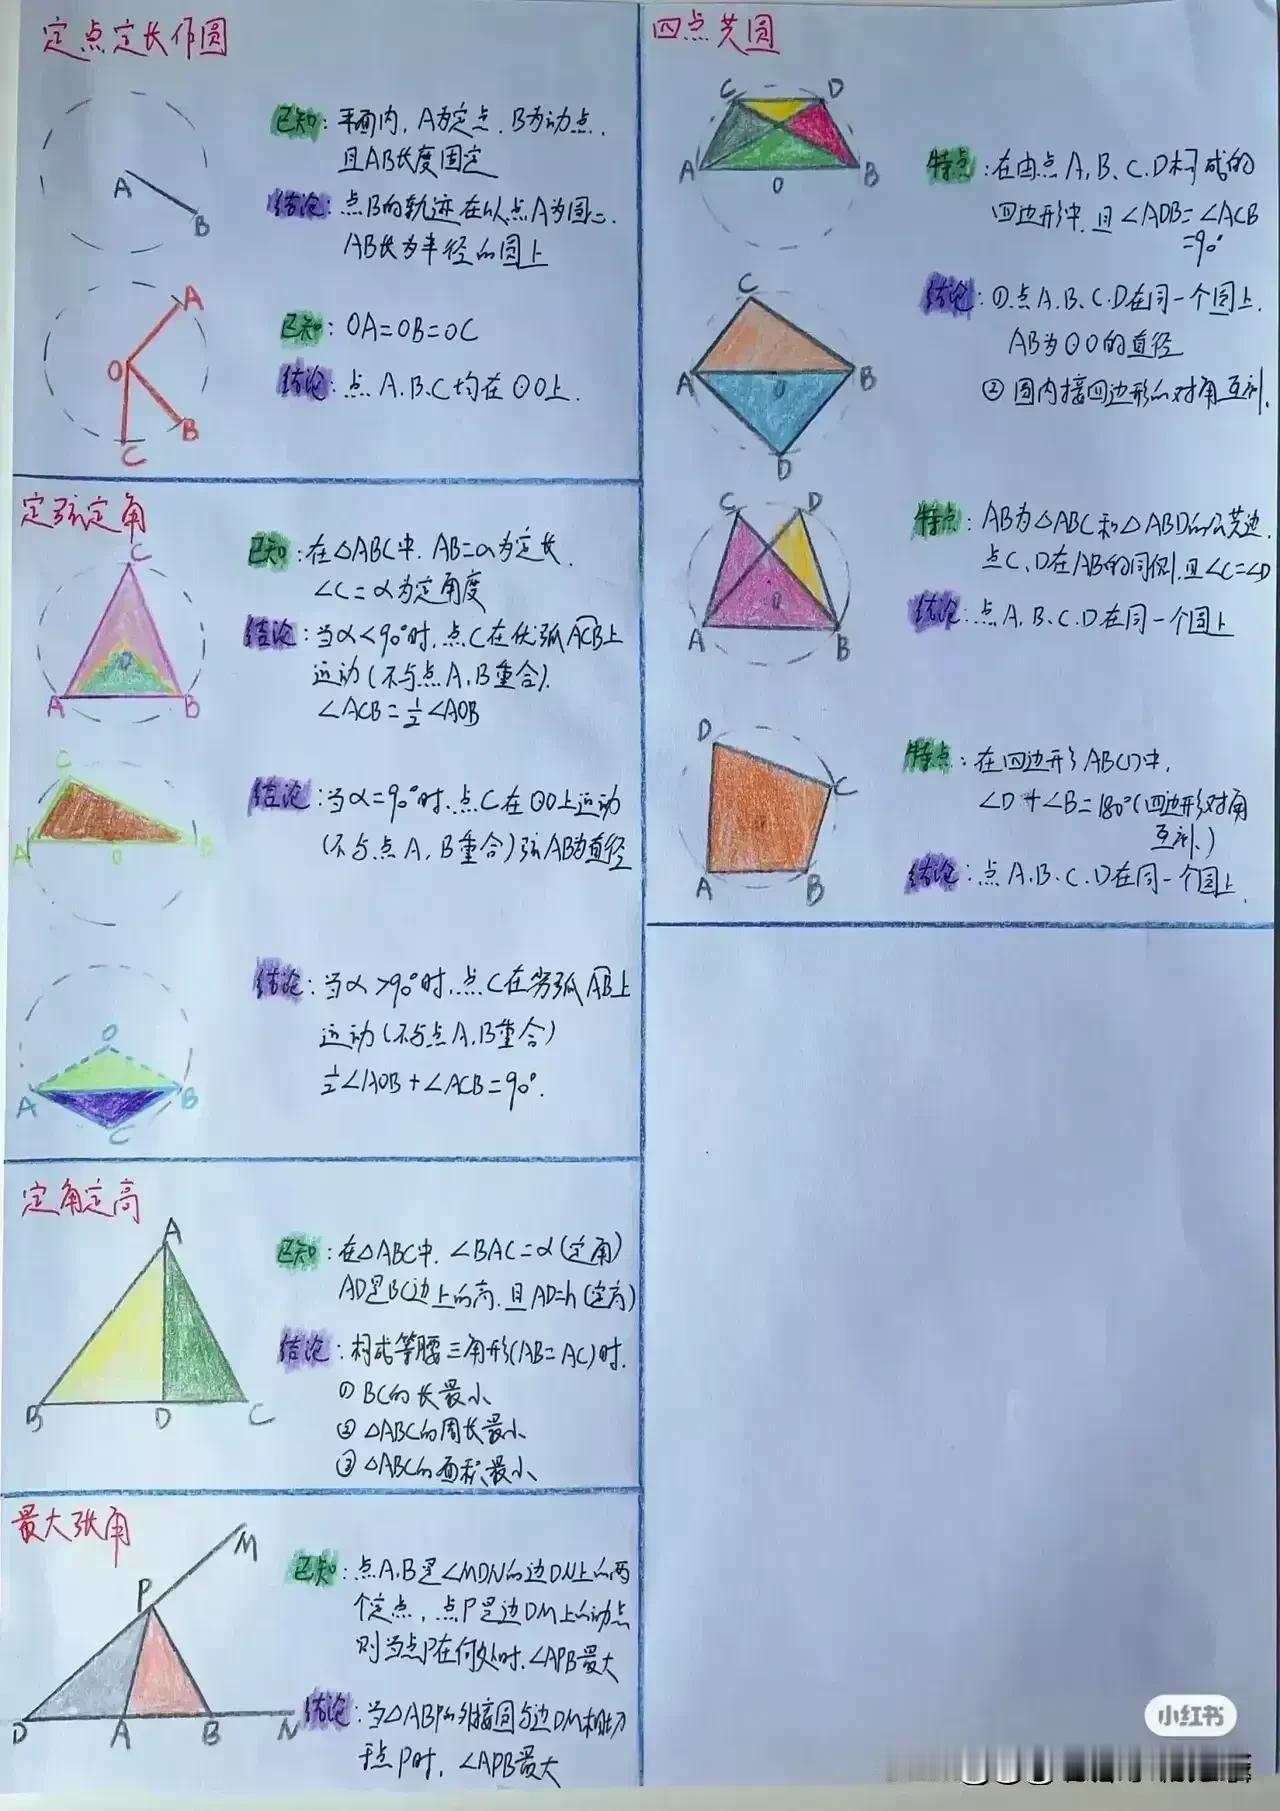 定点定长作圆
A
B
已知：平面内，A为定点，B为动点，
且AB长度固定
结论：点B的轨迹在以点A为圆心，
AB长为半径的圆上
A
O
B
C
已知：OA=OB=OC
结论：点A.B.C均在⊙O上.
定弦定角
C
O
A
B
已知：在△ABC中，AB=a为定长，
∠C=α为定角度
结论：当α<90°时，点C在优弧ACB上
运动(不与点A,B重合).
∠ACB=½∠AOB
C
A
O
B
结论：当α=90°时，点C在⊙O上运动
(不与点A,B重合)弦AB为直径
O
A
B
C
结论：当α>90°时，点C在劣弧AB上
运动(不与点A,B重合)
½∠AOB+∠ACB=90°.
定角定高
A
B
D
C
已知：在△ABC中，∠BAC=α(定角)
AD是BC边上的高，且AD=h(定高)
结论：构成等腰三角形(AB=AC)时，
①BC的长最小
②△ABC的周长最小
③△ABC的面积最小
最大张角
M
P
D
A
B
N
已知：点A.B是∠MDN的边DN上的两
个定点，点P是边DM上的动点
则当点P在何处时，∠APB最大
结论：当△ABP的外接圆与边DM相切
于点P时，∠APB最大
四点共圆
C
D
A
O
B
特点：在由点A,B、C.D构成的
四边形中，且∠ADB=∠ACB
=90°
结论：①点A.B.C.D在同一个圆上，
AB为⊙O的直径
②圆内接四边形的对角互补.
C
A
O
B
D
C
D
O
A
B
特点：AB为△ABC和△ABD的公共边
点C、D在AB的同侧，且∠C=∠D
结论：点A.B.C.D在同一个圆上
D
C
A
B
特点：在四边形ABCD中，
∠D+∠B=180°(四边形对角
互补、)
结论：点A.B.C.D在同一个圆上.
小红书